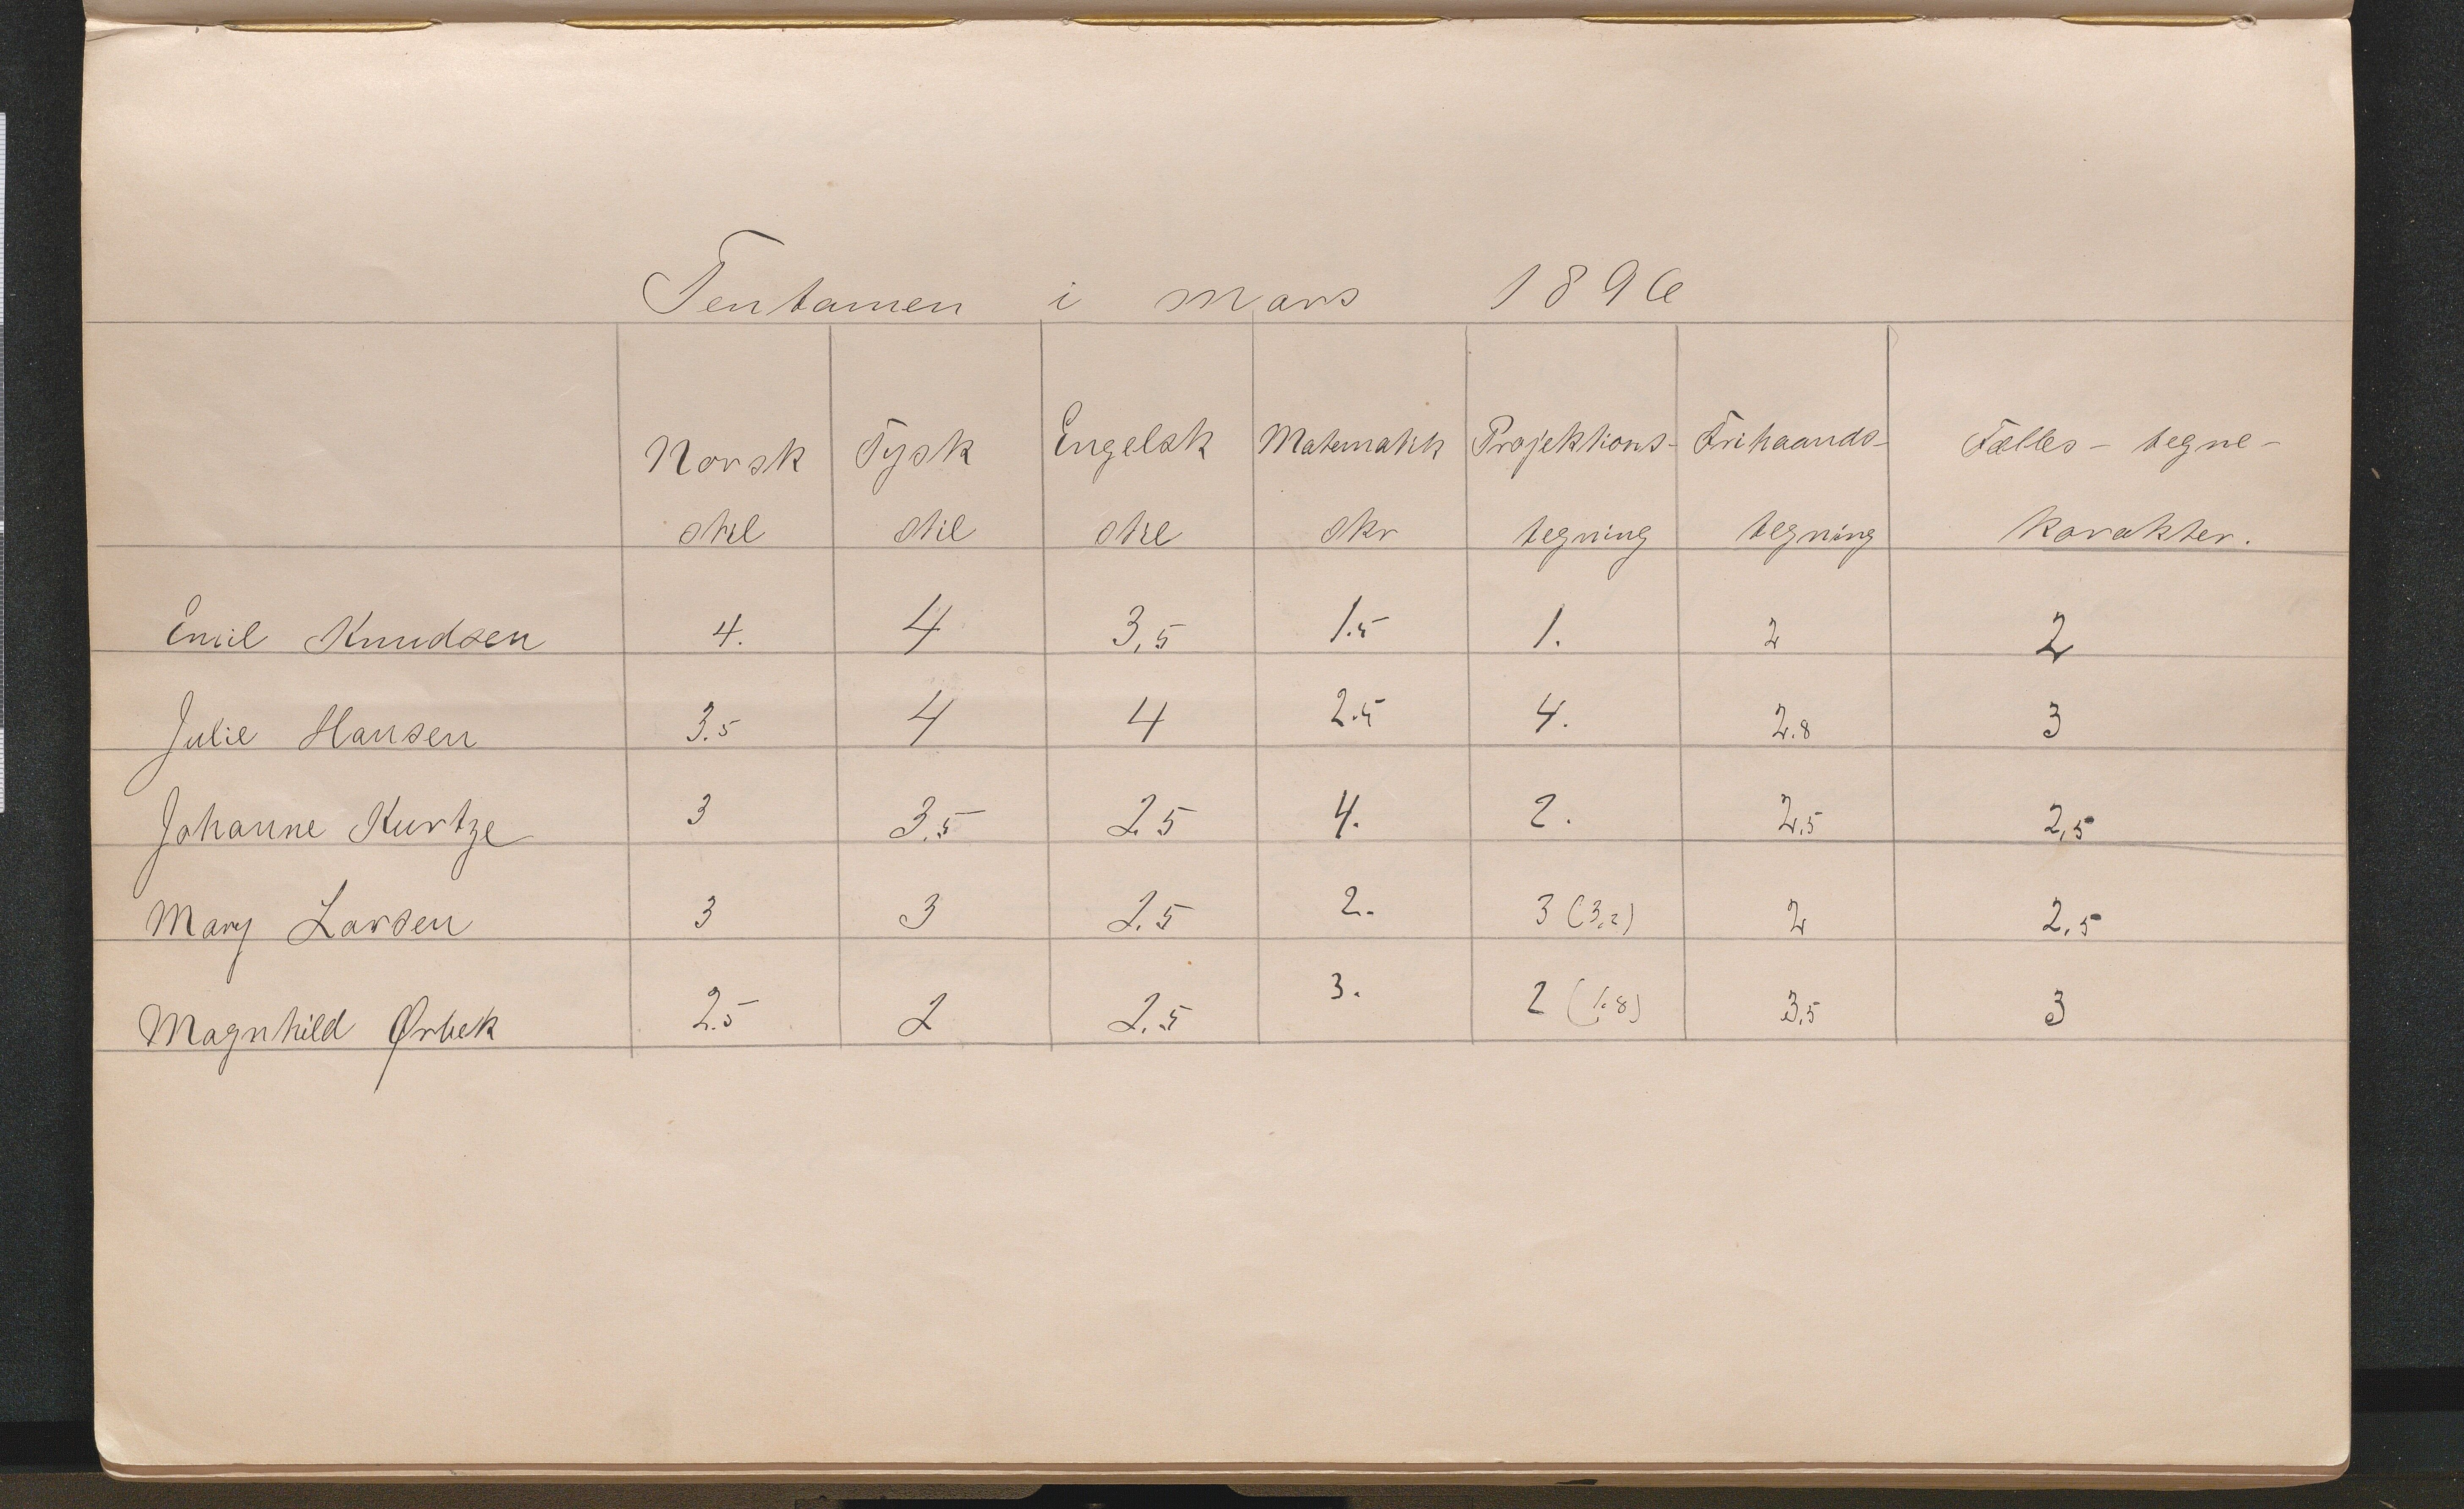 Tentamen i Mars 1896
Norsk Tysk Engelsk Matematik Projektions- Frihaands- Fælles-tegne-
stil stil stil skr tegning tegning karakter.
Emil Knudsen 4. 4 3,5 1.5 1. 2 2
Julie Hansen 3.5 4 4 2.5 4. 2.8 3
Johanne Kurtze 3 3.5 2.5 4. 2. 2,5 2,5
Mary Larsen 3 3 2.5 2. 3 (3,2) 2 2,5
Magnhild Ørbek 2.5 2 2.5 3. 2 (1.8) 3,5 3